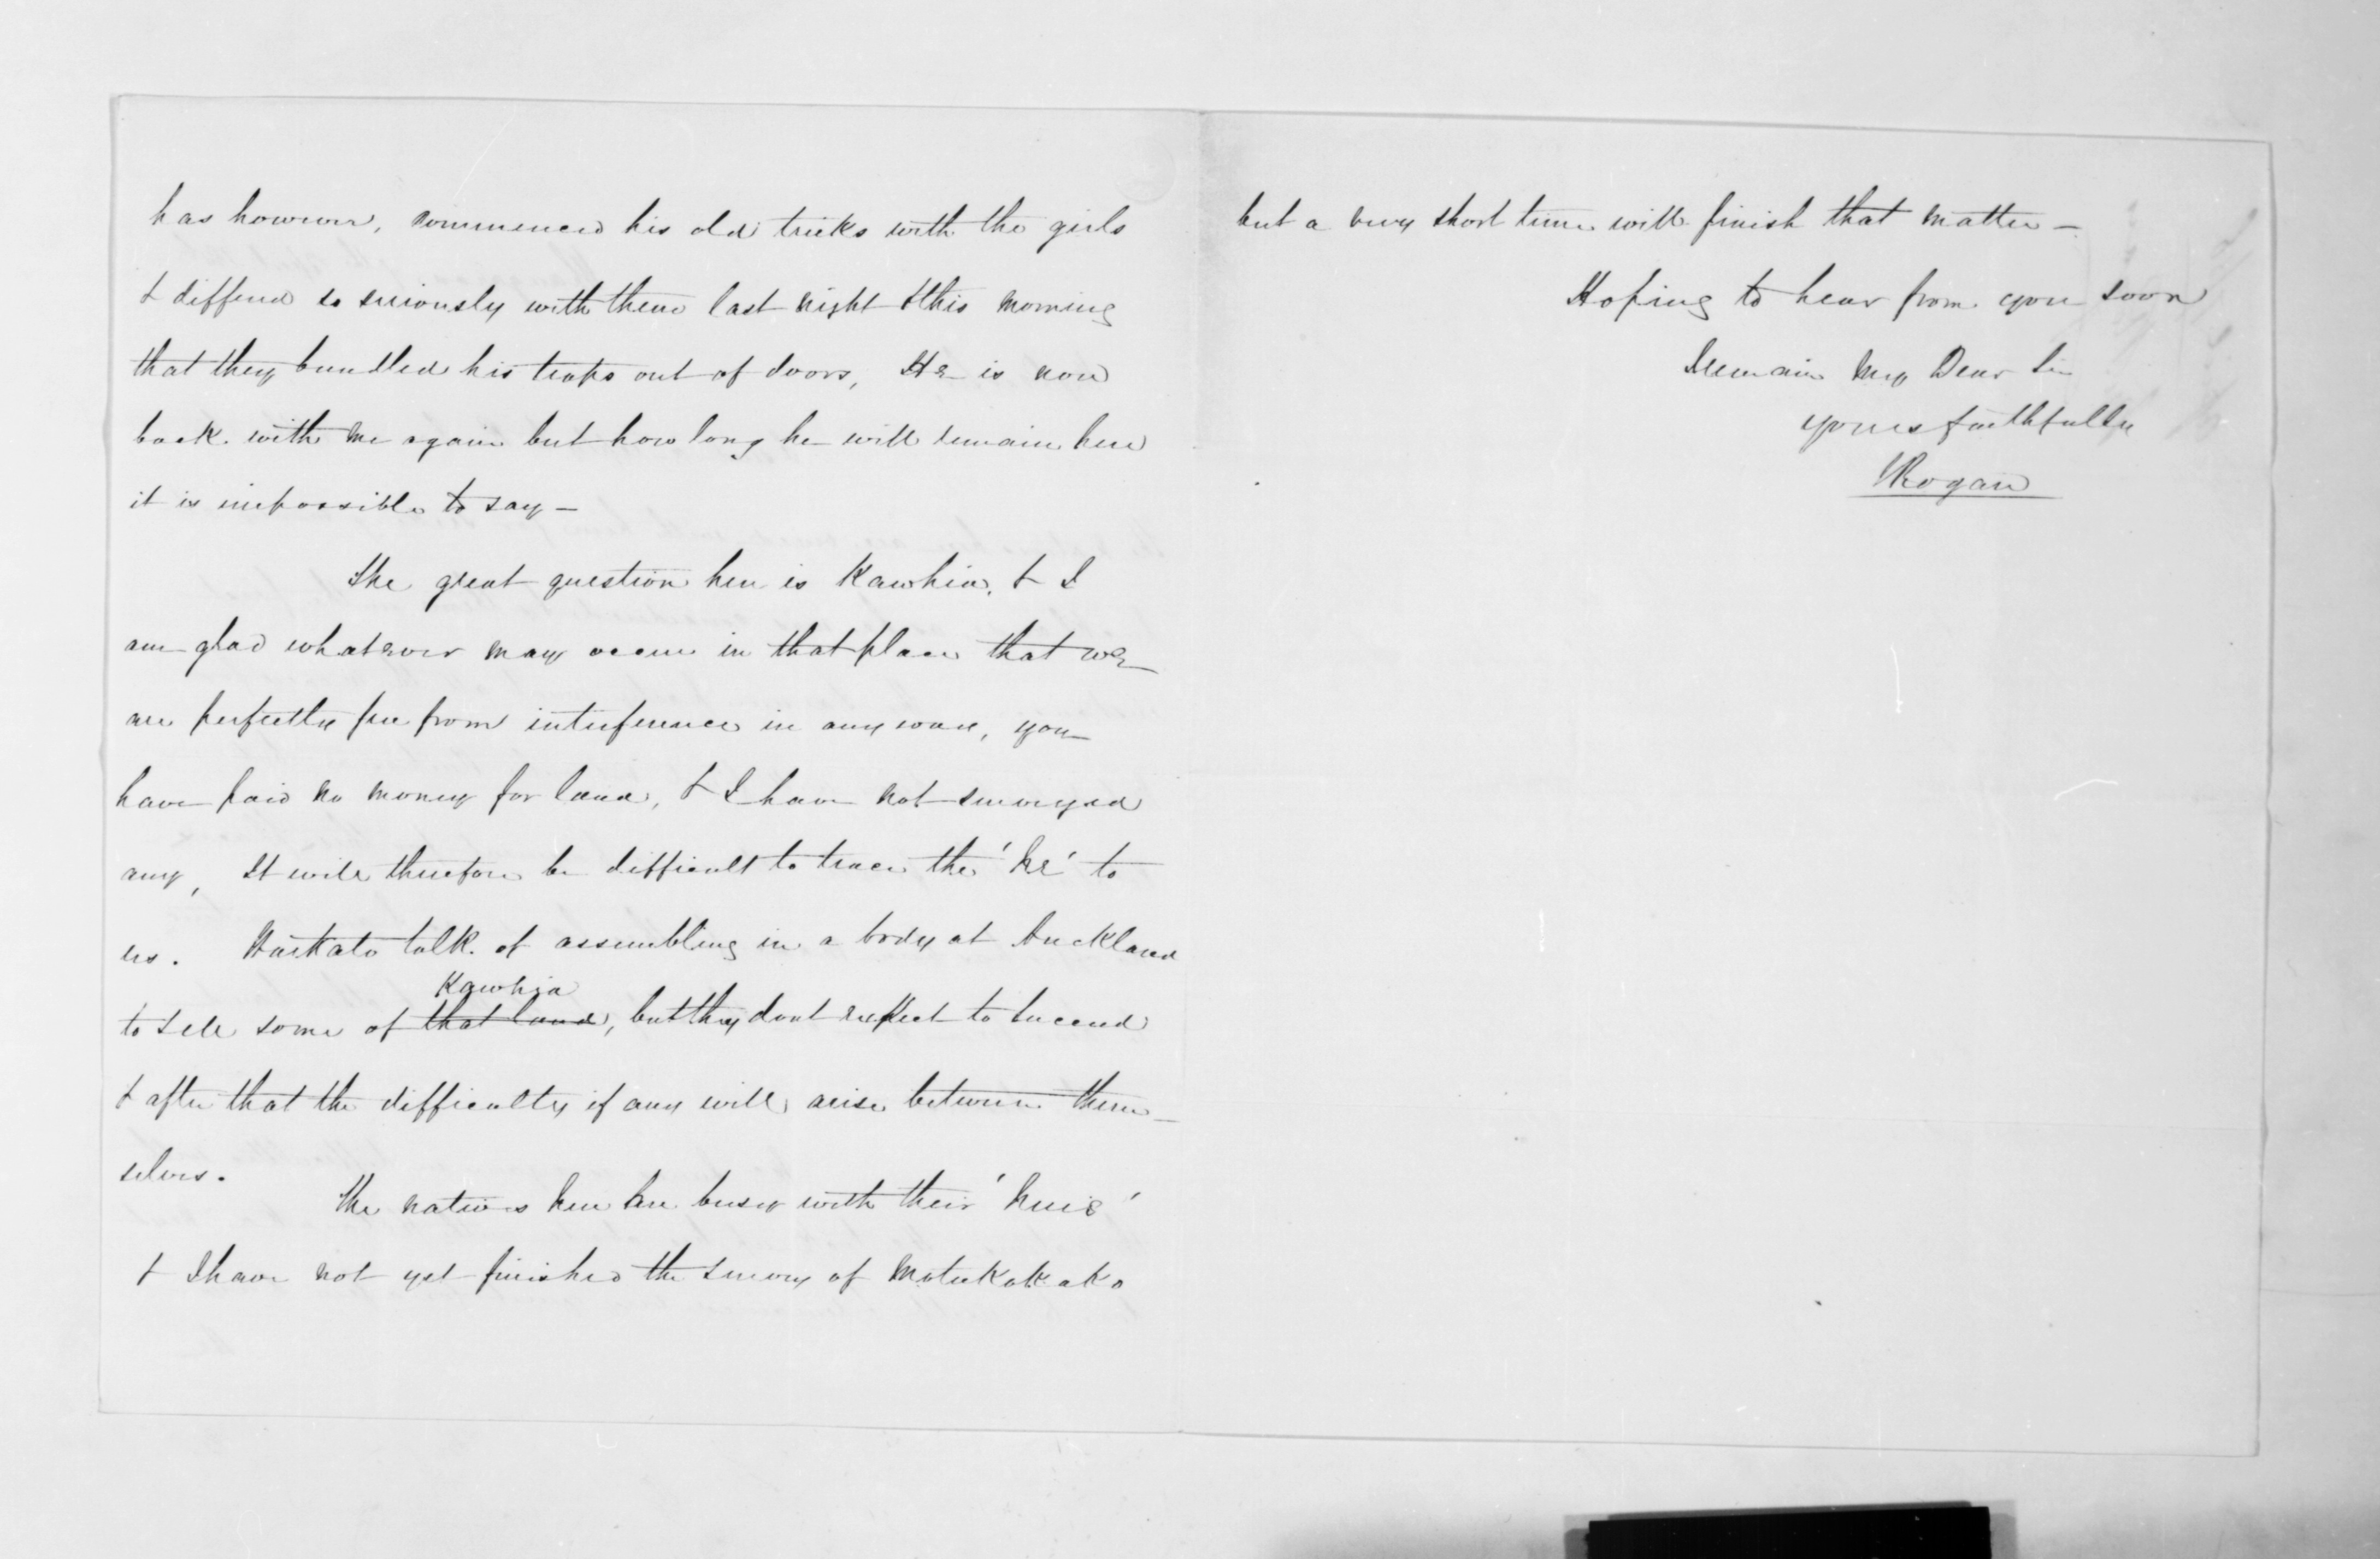 has however, commenced his old tricks with the girls
& differed so seriously with them last night & this morning
that they bundled his traps out of doors, He is now
back with me again but how long he will remain here
it is impossible to say —
The great question here is Kawhia, & I
am glad whatever may occur in that place that we
are perfectly free from interference in any way, you
have paid no money for land, & I have not surveyed
any, It will therefore be difficult to trace the 'he' to
us. Waikato talk of assembling in a body at Auckland
Kawhia
to sell some of that land, but they dont expect to succeed
& after that the difficulty if any will arise between them-
selves.
The natives here are busy with their 'huis'
& I have not yet finished the survey of Motukokako
but a very short time will finish that matter —
Hoping to hear from you soon
Remain My Dear Sir
yours faithfully
J Rogan